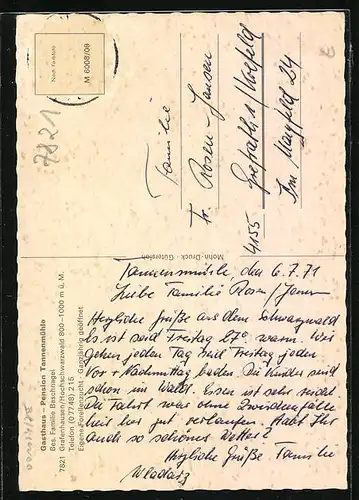 Gasthaus - Pension Tannenmühle
Bes. Familie Baschnagel
7821 Grafenhausen/Hochschwarzwald 800-1000 m ü. M.
Telefon (07748) 215
Eigene Forellenzucht - Ganzjährig geöffnet
Mohn-Druck · Gütersloh
M 6008/09
7821
Familie
Fr. Rosen-Jansen
4155 Grefrath b/Krefeld
Im Mayfeld 24
Tannenmühle, den 6.7.71
Liebe Familie Rosen/Jansen
Herzliche Grüße aus dem Schwarzwald
Es ist seid Freitag 27° warm. Wir
gehen jeden Tag seit Freitag jeden
Vor + Nachmittag baden. Die Kinder sind
schon im Wald. Essen ist sehr
Die Fahrt war ohne Zwischenfälle
gut verlaufen. Habt Ihr
auch so schönes Wetter?
Herzliche Grüße. Familie